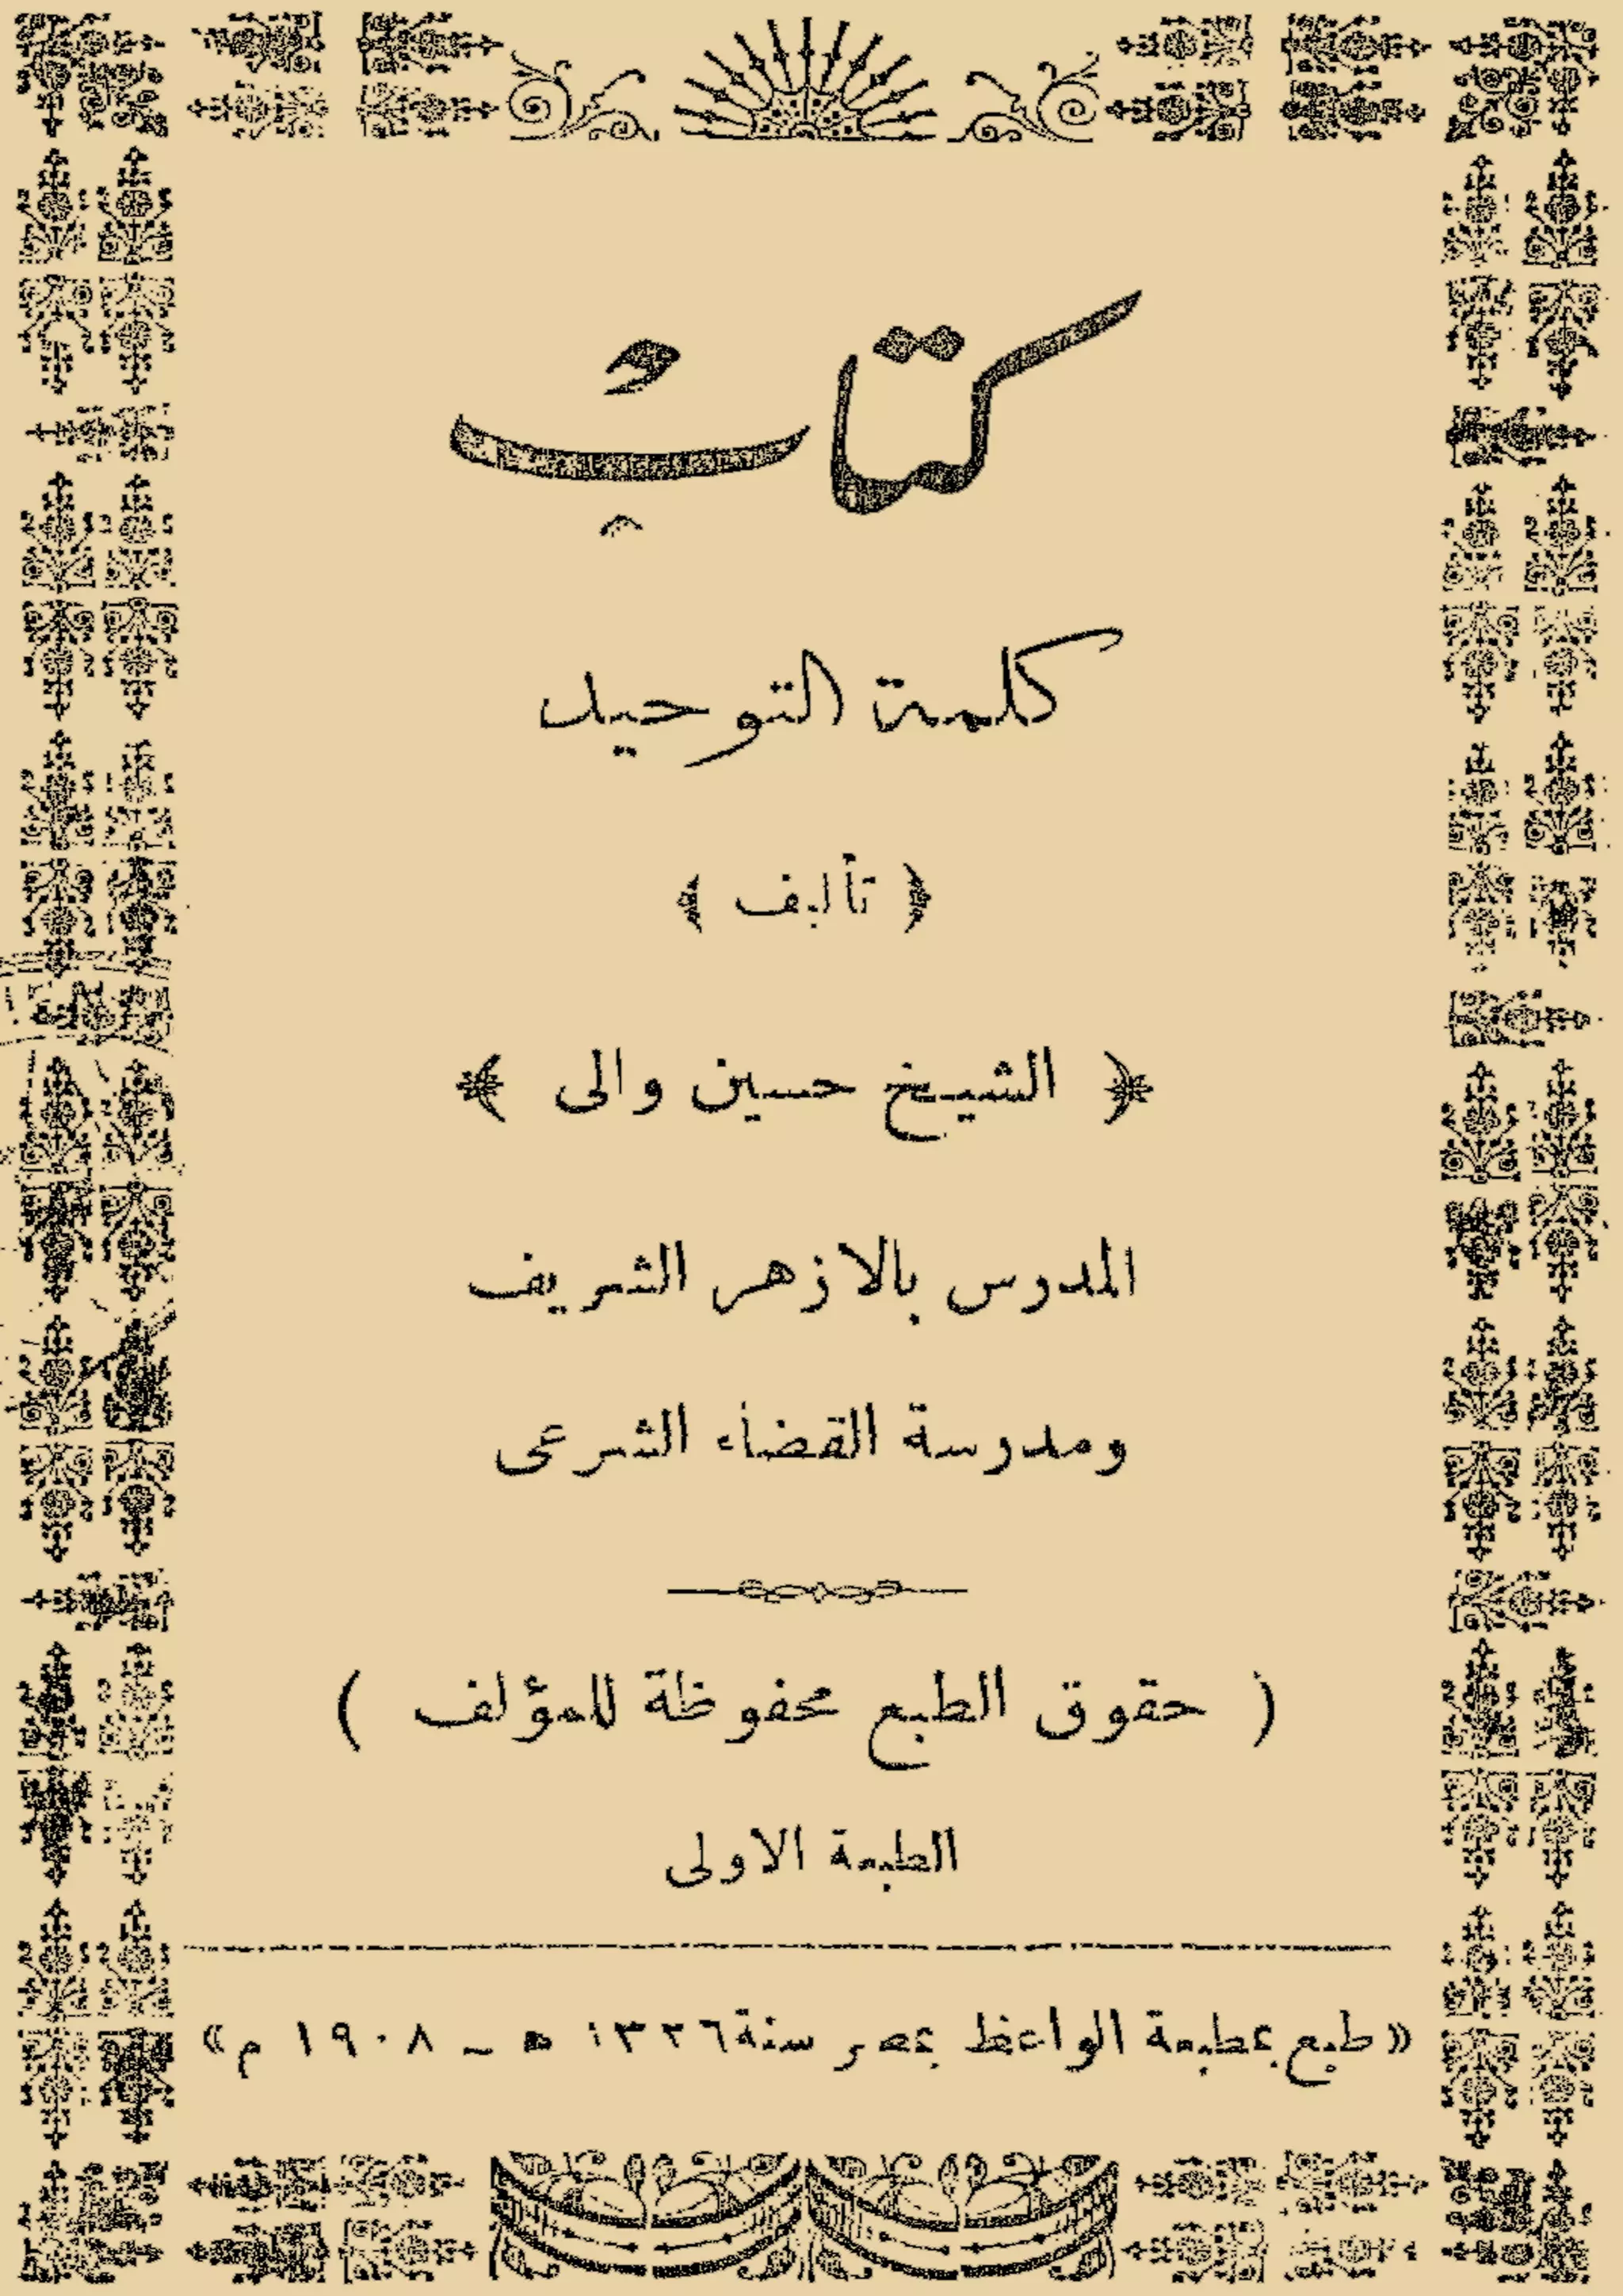 كتابُ
كلمة التوحيد
﴿ تأليف ﴾
﴿ الشيخ حسين والى ﴾
المدرس بالازهر الشريف
ومدرسة القضاء الشرعى
( حقوق الطبع محفوظة للمؤلف )
الطبعة الاولى
«طبع بمطبعة الواعظ بمصر سنة ١٣٢٦ ه ـ ١٩٠٨ م»